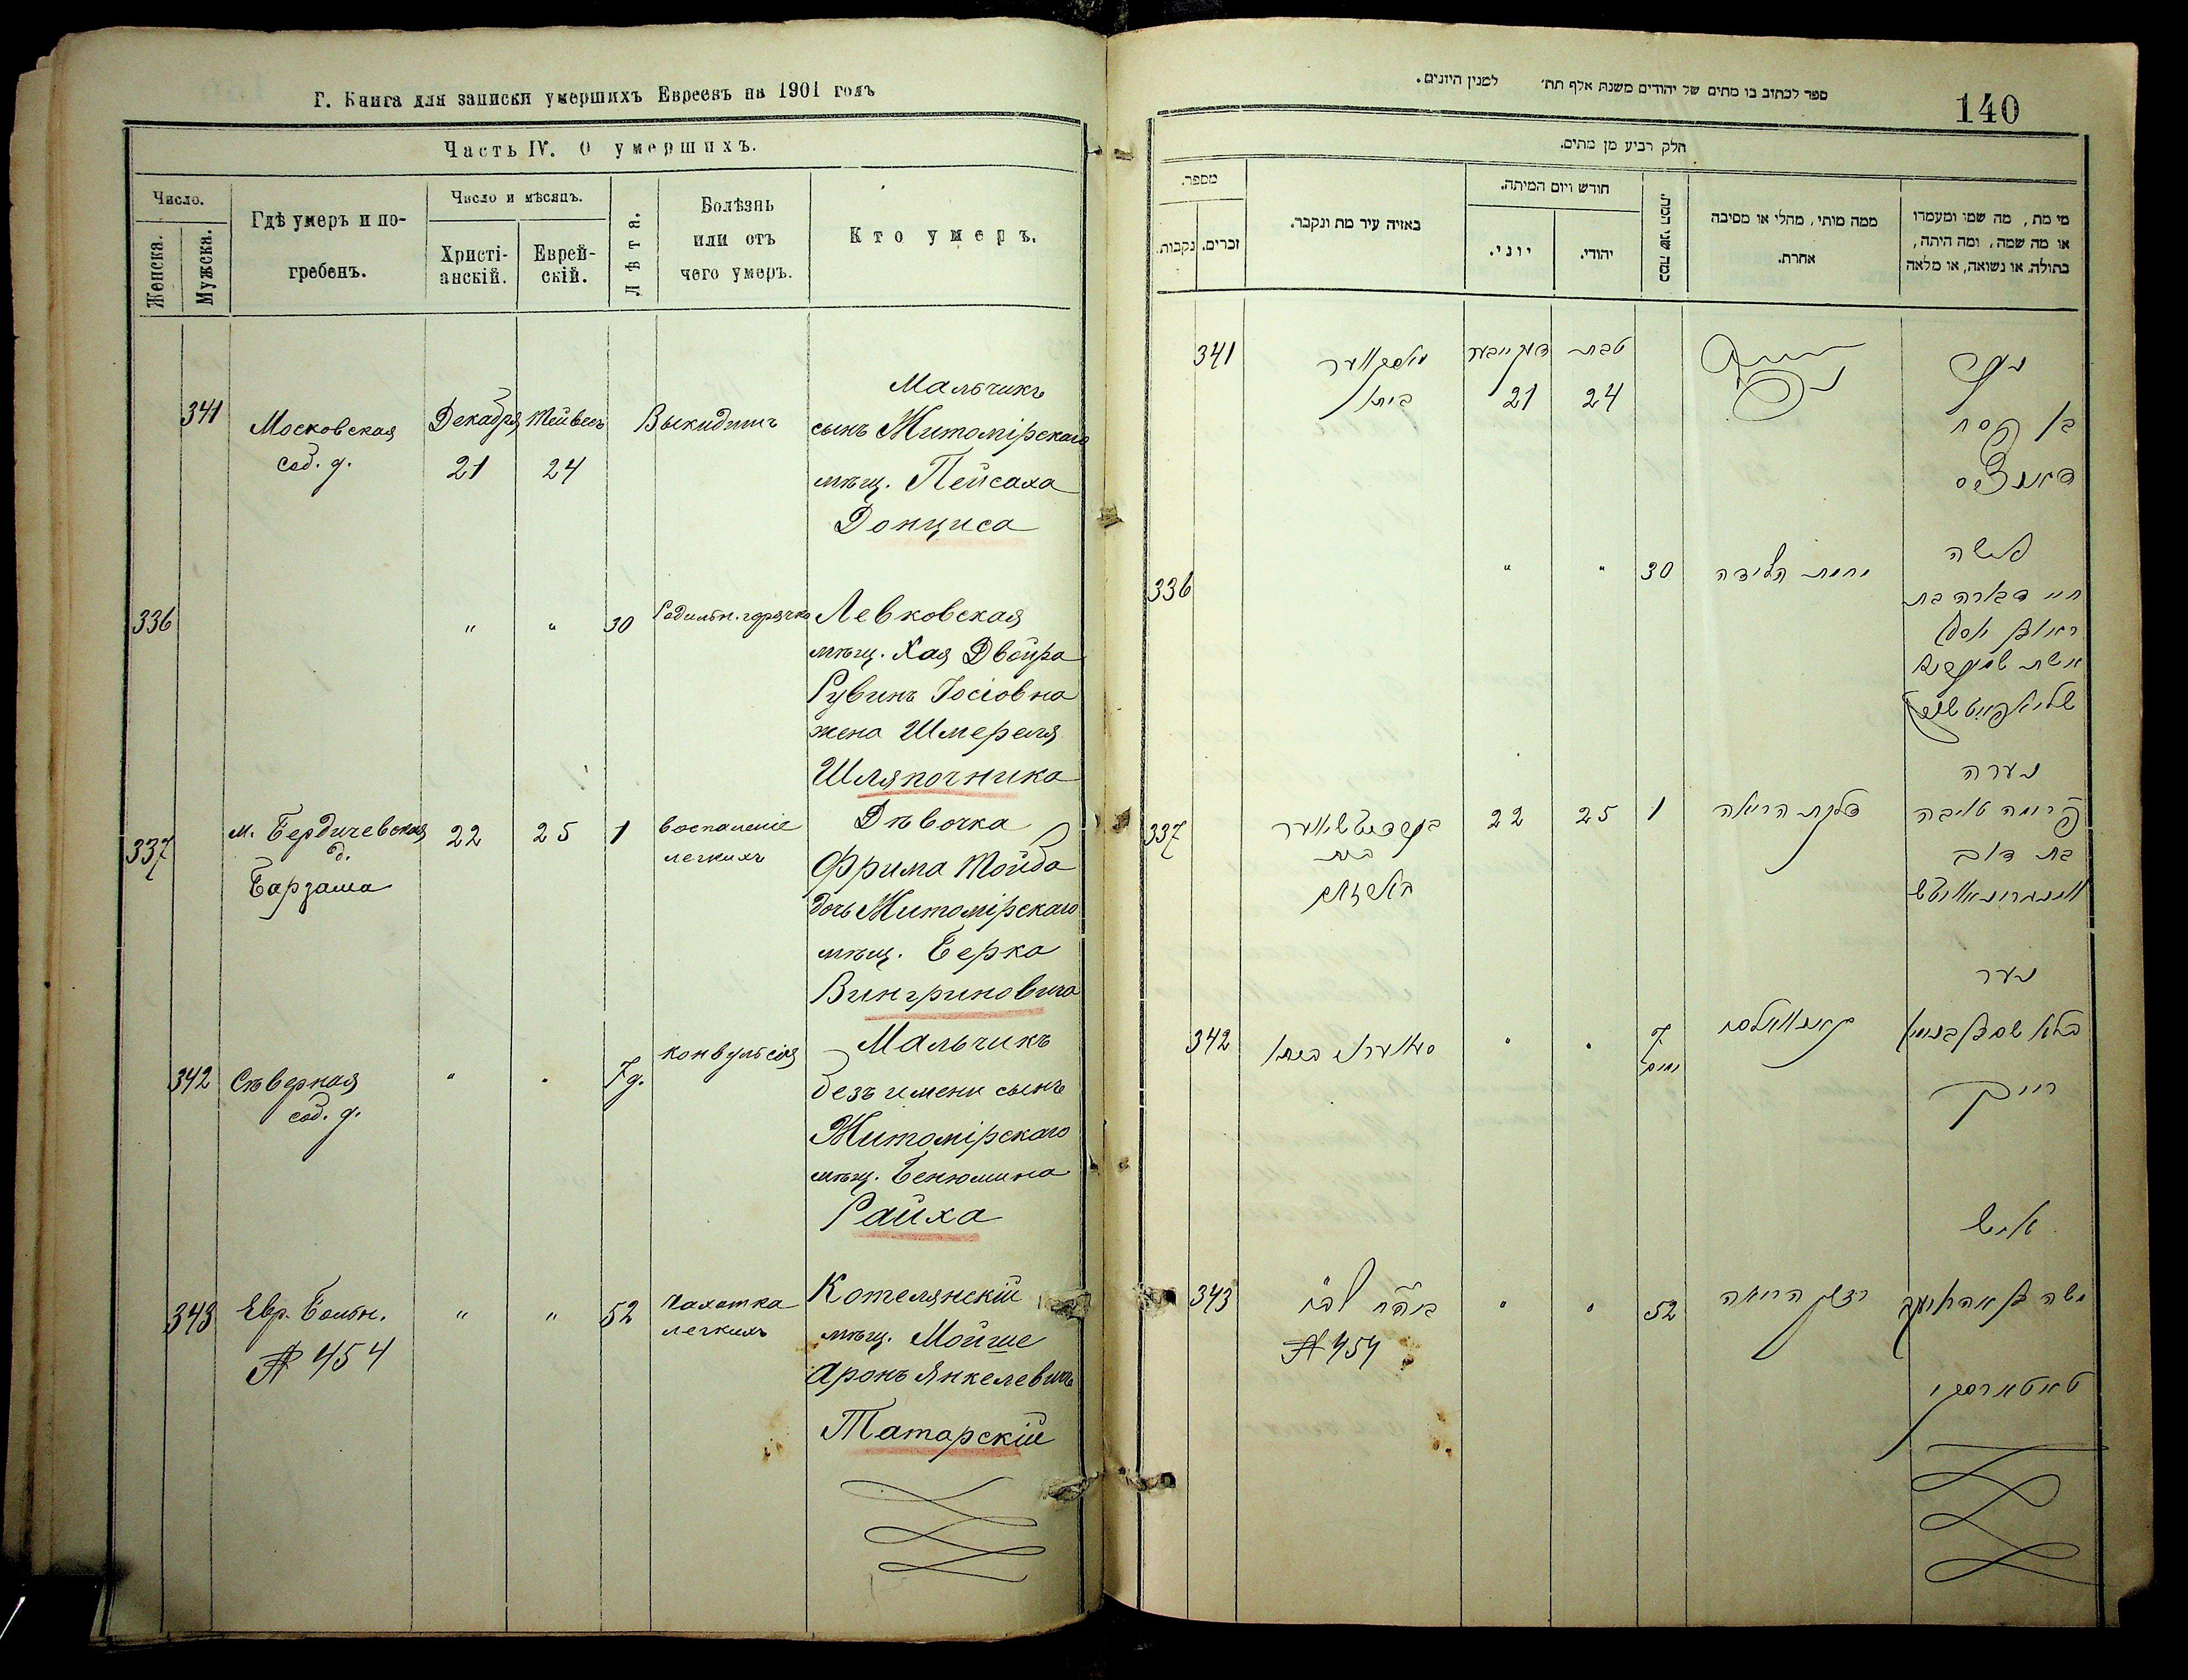 Г. Книга для записки умершихъ Евреевъ на 1901 годъ
Часть IV. О умершихъ.
Число.
Женска.
Мужска.
Гдѣ умеръ и по-
гребенъ.
Число и мѣсяцъ.
Христі-
анскій.
Еврей-
скій.
Лѣта.
Болѣзнь
или отъ
чего умеръ.
Кто умеръ.
341
Московская
соб. д.
Декабря
21
Тейвесъ
24
Выкидышъ
Мальчикъ
сынъ Житомірскаго
мѣщ. Пейсаха
Донциса
336
"
"
30
Родильн. горячка
Левковская
мѣщ. Хая Двойра
Рувинъ Іосіовна
жена Шмереля
Шляпочника
337
м. Бердичевская
д.
Барзаша
22
25
1
воспаленіе
легкихъ
Дѣвочка
Фрима Тойба
дочь Житомірскаго
мѣщ. Берка
Вингриновича
342
Сѣверная
соб. д.
"
"
7 д.
конвульсія
Мальчикъ
безъ имени сынъ
Житомірскаго
мѣщ. Бенюмина
Райха
343
Евр. Больн.
№ 454
"
"
52
Чахотка
легкихъ
Котелянскій
мѣщ. Мойше
Аронъ Янкелевичъ
Татарскій
ספר לכתוב בו מתים של יהודים משנת אלף תת׳ למנין היונים.
140
חלק רביע מן מתים.
מספר.
נקבות.
זכרים.
באיזה עיר מת ונקבר.
חודש ויום המיתה.
יוני.
יהודי.
כמה שני המת.
ממה מותו, מחלי או מסיבה
אחרת.
מי מת, מה שמו ומעמדו
או מה שמה, ומה היתה,
בתולה או נשואה, או מלאה
341
ביתו
21
טבת
24
נער
בן פסח
336
"
"
30
אשה
חיי דבורה בת
ראובן יוסף
אשת
337
בית
22
25
1
דלקת הריאה
נערה
פרומה טויבה
בת דוב
342
ביתו
"
"
7
ימים
נער
בלא שם בן בנימין
רייך
343
№ 454
"
"
52
הריאה
איש
משה
טאטארסקי